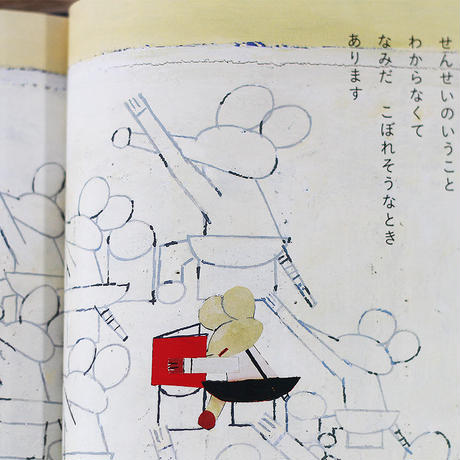 せんせいのいうこと
わからなくて
なみだ　こぼれそうなとき
あります